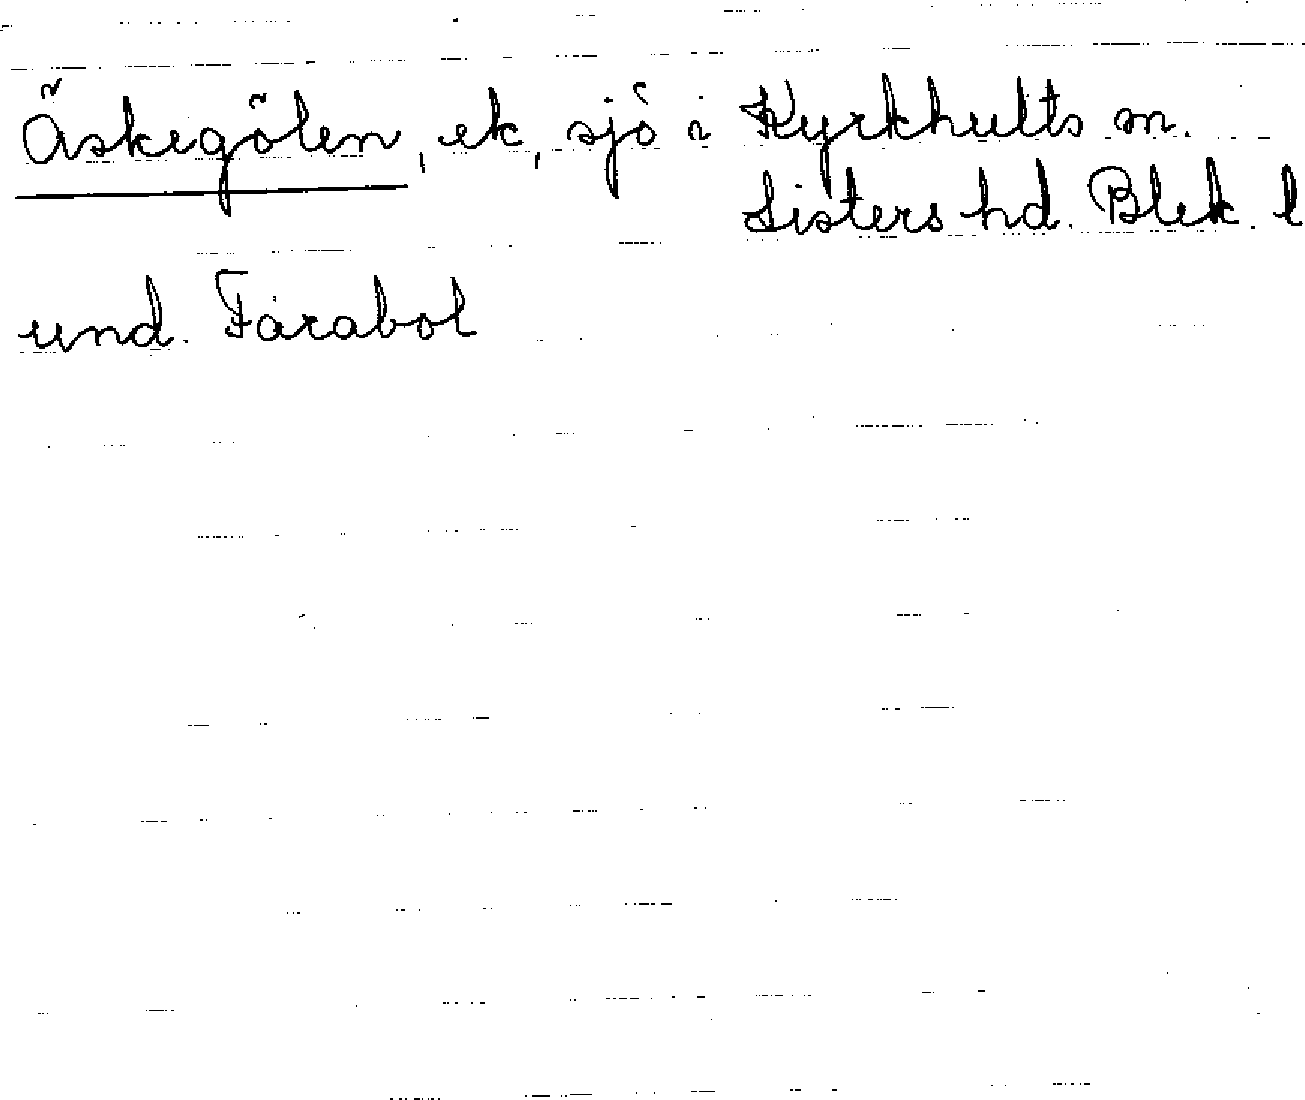 Äskegölen, ek, sjö i Kyrkhults sn.
Listers hd. Blek. l
und. Farabol